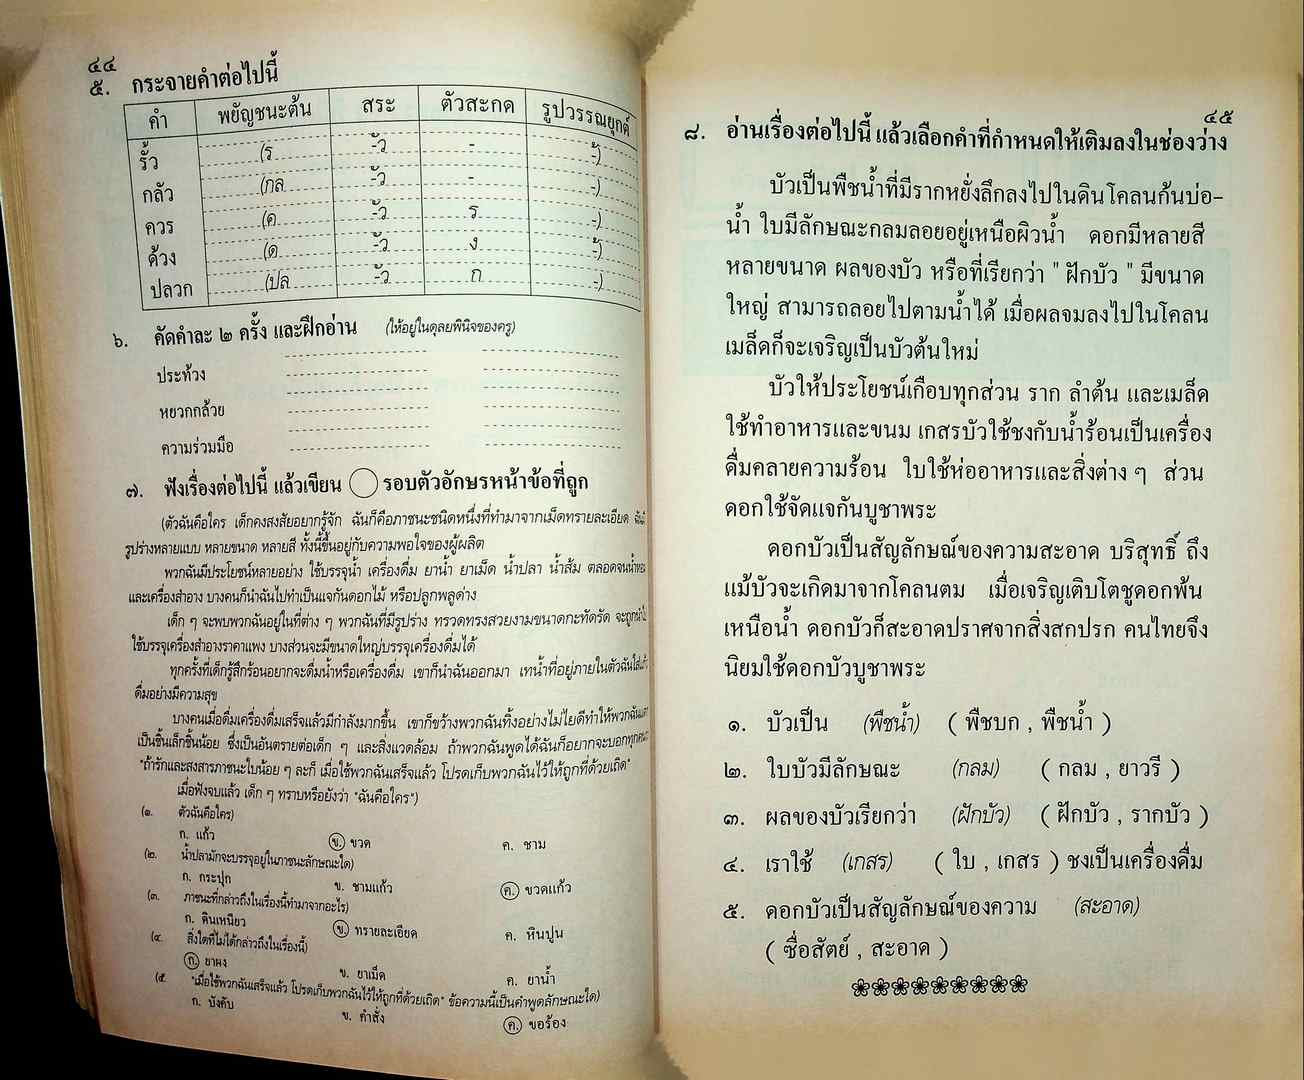 ๔๔
๕. กระจายคำต่อไปนี้
คำ พยัญชนะต้น สระ ตัวสะกด รูปวรรณยุกต์
รั้ว (ร -ัว - -้)
กลัว (กล -ัว - -)
ควร (ค -ัว ร -)
ด้วง (ด -ัว ง -้)
ปลวก (ปล -ัว ก -)
๖. คัดคำละ ๒ ครั้ง และฝึกอ่าน (ให้อยู่ในดุลยพินิจของครู)
ประท้วง
หยวกกล้วย
ความร่วมมือ
๗. ฟังเรื่องต่อไปนี้ แล้วเขียน ◯ รอบตัวอักษรหน้าข้อที่ถูก
(ตัวฉันคือใคร เด็กคงสงสัยอยากรู้จัก ฉันก็คือภาชนะชนิดหนึ่งที่ทำมาจากเม็ดทรายละเอียด
รูปร่างหลายแบบ หลายขนาด หลายสี ทั้งนี้ขึ้นอยู่กับความพอใจของผู้ผลิต
พวกฉันมีประโยชน์หลายอย่าง ใช้บรรจุน้ำ เครื่องดื่ม ยาน้ำ ยาเม็ด น้ำปลา น้ำส้ม ตลอดจนน้ำหอม
และเครื่องสำอาง บางคนก็นำฉันไปทำเป็นแจกันดอกไม้ หรือปลูกพลูด่าง
เด็ก ๆ จะพบพวกฉันอยู่ในที่ต่าง ๆ พวกฉันที่มีรูปร่าง ทรวดทรงสวยงามขนาดกะทัดรัด จะถูกนำไป
ใช้บรรจุเครื่องสำอางราคาแพง บางส่วนจะมีขนาดใหญ่บรรจุเครื่องดื่มได้
ทุกครั้งที่เด็กรู้สึกร้อนอยากจะดื่มน้ำหรือเครื่องดื่ม เขาก็นำฉันออกมา เทน้ำที่อยู่ภายในตัวฉันใส่แก้ว
ดื่มอย่างมีความสุข
บางคนเมื่อดื่มเครื่องดื่มเสร็จแล้วมีกำลังมากขึ้น เขาก็ขว้างพวกฉันทิ้งอย่างไม่ไยดีทำให้พวกฉันแตก
เป็นชิ้นเล็กชิ้นน้อย ซึ่งเป็นอันตรายต่อเด็ก ๆ และสิ่งแวดล้อม ถ้าพวกฉันพูดได้ฉันก็อยากจะบอกทุกคนว่า
"ถ้ารักและสงสารภาชนะใบน้อย ๆ ละก็ เมื่อใช้พวกฉันเสร็จแล้ว โปรดเก็บพวกฉันไว้ให้ถูกที่ด้วยเถิด"
เมื่อฟังจบแล้ว เด็ก ๆ ทราบหรือยังว่า "ฉันคือใคร")
(๑. ตัวฉันคือใคร)
ก. แก้ว ข. ขวด ค. ชาม
(๒. น้ำปลามักจะบรรจุอยู่ในภาชนะลักษณะใด)
ก. กระปุก ข. ชามแก้ว ค. ขวดแก้ว
(๓. ภาชนะที่กล่าวถึงในเรื่องนี้ทำมาจากอะไร)
ก. ดินเหนียว ข. ทรายละเอียด ค. หินปูน
(๔. สิ่งใดที่ไม่ได้กล่าวถึงในเรื่องนี้)
ก. ยาผง ข. ยาเม็ด ค. ยาน้ำ
(๕. "เมื่อใช้พวกฉันเสร็จแล้ว โปรดเก็บพวกฉันไว้ให้ถูกที่ด้วยเถิด" ข้อความนี้เป็นคำพูดลักษณะใด)
ก. บังคับ ข. คำสั่ง ค. ขอร้อง
๔๕
๘. อ่านเรื่องต่อไปนี้ แล้วเลือกคำที่กำหนดให้เติมลงในช่องว่าง
บัวเป็นพืชน้ำที่มีรากหยั่งลึกลงไปในดินโคลนก้นบ่อ-
น้ำ ใบมีลักษณะกลมลอยอยู่เหนือผิวน้ำ ดอกมีหลายสี
หลายขนาด ผลของบัว หรือที่เรียกว่า " ฝักบัว " มีขนาด
ใหญ่ สามารถลอยไปตามน้ำได้ เมื่อผลจมลงไปในโคลน
เมล็ดก็จะเจริญเป็นบัวต้นใหม่
บัวให้ประโยชน์เกือบทุกส่วน ราก ลำต้น และเมล็ด
ใช้ทำอาหารและขนม เกสรบัวใช้ชงกับน้ำร้อนเป็นเครื่อง
ดื่มคลายความร้อน ใบใช้ห่ออาหารและสิ่งต่าง ๆ ส่วน
ดอกใช้จัดแจกันบูชาพระ
ดอกบัวเป็นสัญลักษณ์ของความสะอาด บริสุทธิ์ ถึง
แม้บัวจะเกิดมาจากโคลนตม เมื่อเจริญเติบโตชูดอกพ้น
เหนือน้ำ ดอกบัวก็สะอาดปราศจากสิ่งสกปรก คนไทยจึง
นิยมใช้ดอกบัวบูชาพระ
๑. บัวเป็น (พืชน้ำ) ( พืชบก , พืชน้ำ )
๒. ใบบัวมีลักษณะ (กลม) ( กลม , ยาวรี )
๓. ผลของบัวเรียกว่า (ฝักบัว) ( ฝักบัว , รากบัว )
๔. เราใช้ (เกสร) ( ใบ , เกสร ) ชงเป็นเครื่องดื่ม
๕. ดอกบัวเป็นสัญลักษณ์ของความ (สะอาด)
( ซื่อสัตย์ , สะอาด )